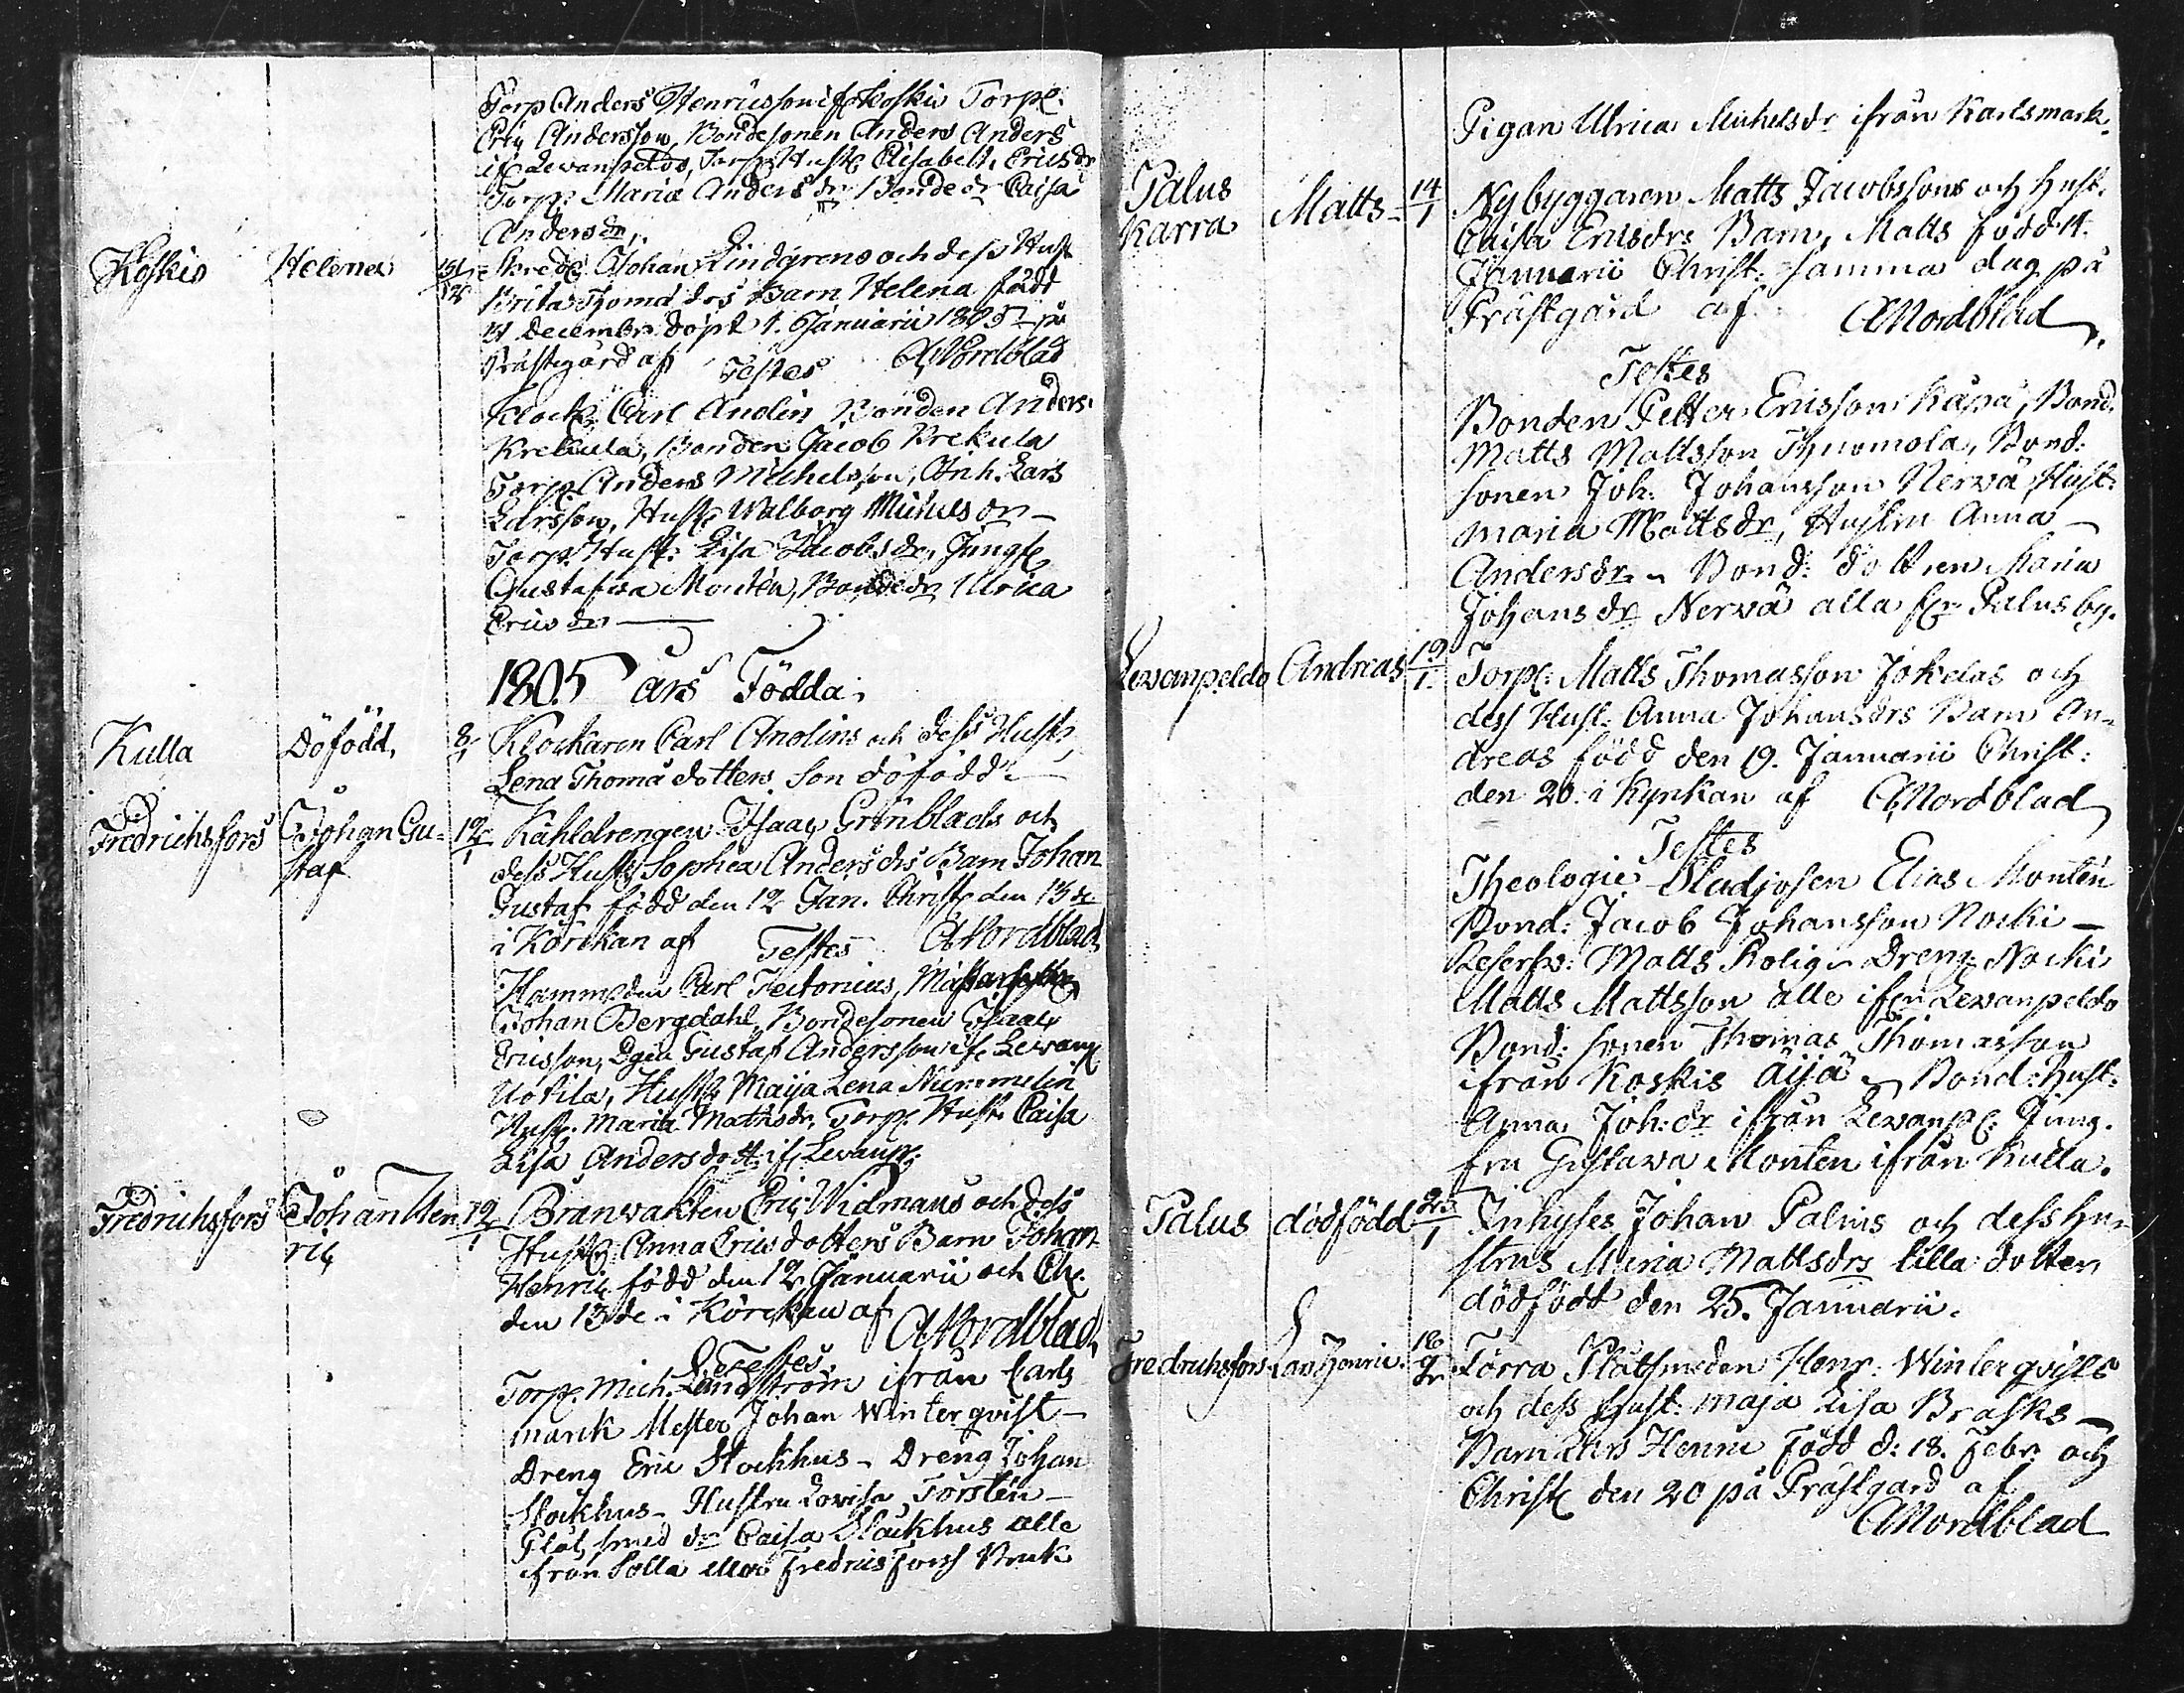 Torp Anders Henricsson ifr Koskis Torp:
Eric Andersson, Bondesonen Anders Anders
if Levanpeldo, Torp: Hust: Elisabeth Ericsdr
Torp: Maria Andersdr Bondedr Caisa
Andersdr,
Koskis Helena 12 Johan Lindgrens och dess Hust
Brita Thomædrs Barn Helena född
31 decembr: döpt 1. Januarii 1805 på
Prästegård af Testes A Nordblad
Klock: Carl Anolin Bonden Anders
Krekula, Bonden Jacob Krekula
Torp: Anders Michelsson, Lars
Larsson, Hust: Walborg Michelsdr –
Torp: Hust: Lisa Jacobsdr, Jungf:
Gustafva Montén, Bondedr Ulrica
Ericsdr
1805 års Födda.
Kulla Döfödd, 8/1 Klockaren Carl Anolins och dess Hust:
Lena Thomædotters son döfödd
Fredrichsfors Johan Gu= 12/1 Kåhldrengen Isaac Grönblads och
staf dess Hust: Sophia Andersdrs Barn Johan
Gustaf född den 12 Jan. Christ: den 13de
i Körckan af Testes A Nordblad
Carl Tectorius,
Johan Bergdahl, Bondesonen Isaac
Ericsson, Gustaf Andersson if: Levanp
Uotila, Hust: Maija Lena Nummelin
Hust: Maria Mathsdr, Torp: Hust: Caisa
Lisa Andersdott: if: Levanp:
Fredrichsfors Johan Hen 12/1 Branvakten Eric Widmans och dess
ric Hustr: Anna Ericsdotters Barn Johan
Henric född den 12 Januarii och Ch:
den 13de i Körckan af A Nordblad
Testes
Torp: Mich. Lindström ifrån Carls
mark Mester Johan Winterqvist –
Dreng Eric Stockhus – Dreng Johan
Stockhus – Hustru Lovisa Torstén –
Plåtsmed dr Caisa Stockhus alle
ifrån Fredricsforss Bruk
Pigan Ulrica Michelsdr ifrån Karlsmark.
Palus Matts 14/1 Nybyggaren Matts Jacobssons och Hust.
Karra Caisa Ericsdrs Barn, Matts född 14.
Januarii Christ: samma dag på
Prästgård af. A Nordblad
Testes
Bonden Petter Ericsson Kåpå, Bond.
Matts Mattsson Thuomola, Bond:
sonen Joh: Johansson Nervä, Hust:
Maria Mattsdr, Hustru Anna –
Andersdr – Bond: dottren Maria
Johansdr Nervä alla fr: Palus by.
Levanpeldo Andreas 19/1 Torp: Matts Thomasson Jokelas och
dess Hust: Anna Johansdrs Barn An=
dreas född den 19. Januarii Christ:
den 20. i Kyrkan af A Nordblad
Testes
Theologie Stadjosen Elias Montén
Bond: Jacob Johansson Nocki –
Reserfv: Matts Rolig – Dreng Nocki
Matts Mattsson alle ifrn Levanpeldo
Bond: sonen Thomas Thomasson
ifrån Koskis Äijä – Bond: hust:
Anna Joh:dr ifrån Levanp: Jung.
fru Gustava Montén ifrån Kulla.
Palus dödfödd 25/1 Inhyses Johan Palins och dess hu=
strus Maria Mattsdrs lilla dotter
dödfödd den 25. Januarii.
Fredrichsfors Lars Henric 18 Plåtsmeden Henr: Winterqvists
och dess hust: Maja Lisa Brasks –
Barn Lars Henric född d: 18. Febr: och
Christ: den 20 på Prästgård af
A Nordblad